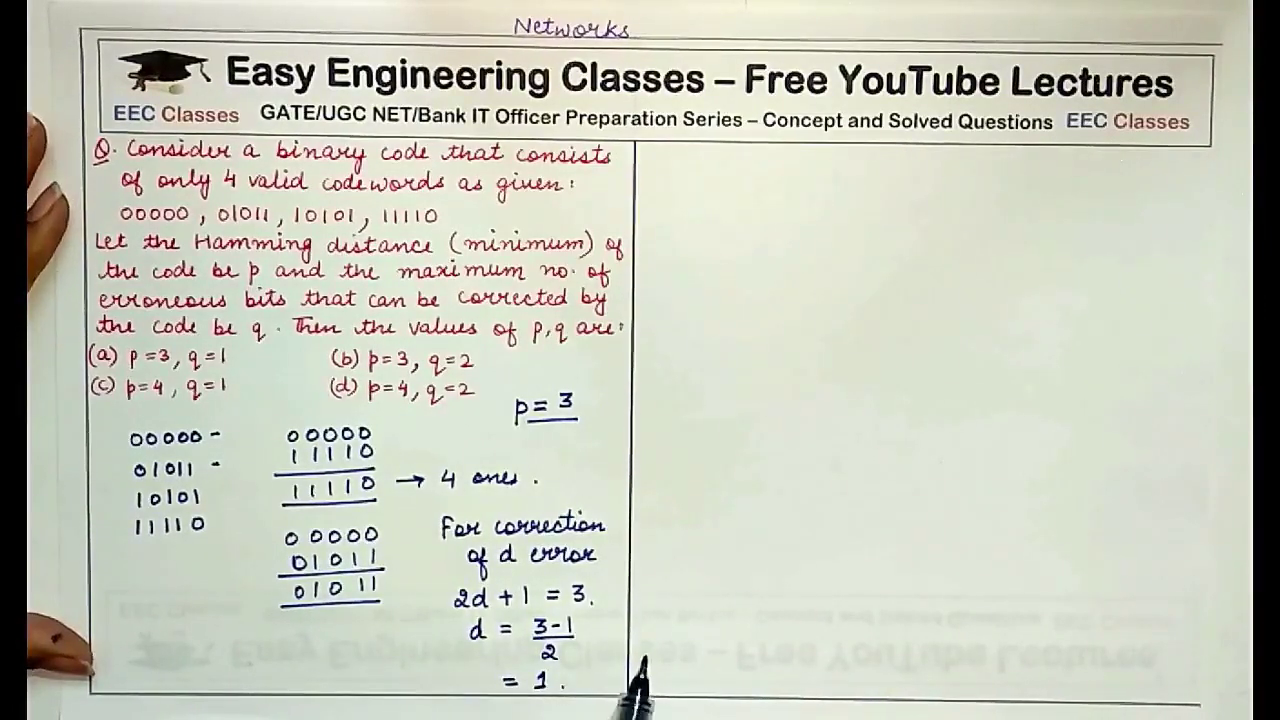 Networks
Easy Engineering Classes – Free YouTube Lectures
EEC Classes GATE/UGC NET/Bank IT Officer Preparation Series – Concept and Solved Questions EEC Classes
Q. Consider a binary code that consists
of only 4 valid codewords as given:
00000, 01011, 10101, 11110
Let the Hamming distance (minimum) of
the code be p and the maximum no. of
erroneous bits that can be corrected by
the code be q. Then the values of p,q are:
(a) p=3, q=1 (b) p=3, q=2
(c) p=4, q=1 (d) p=4, q=2
p = 3
00000 -
01011 -
10101
11110
00000
11110
11110 → 4 ones.
00000
01011
01011
For correction
of d error
2d + 1 = 3.
d = 3-1
2
= 1.